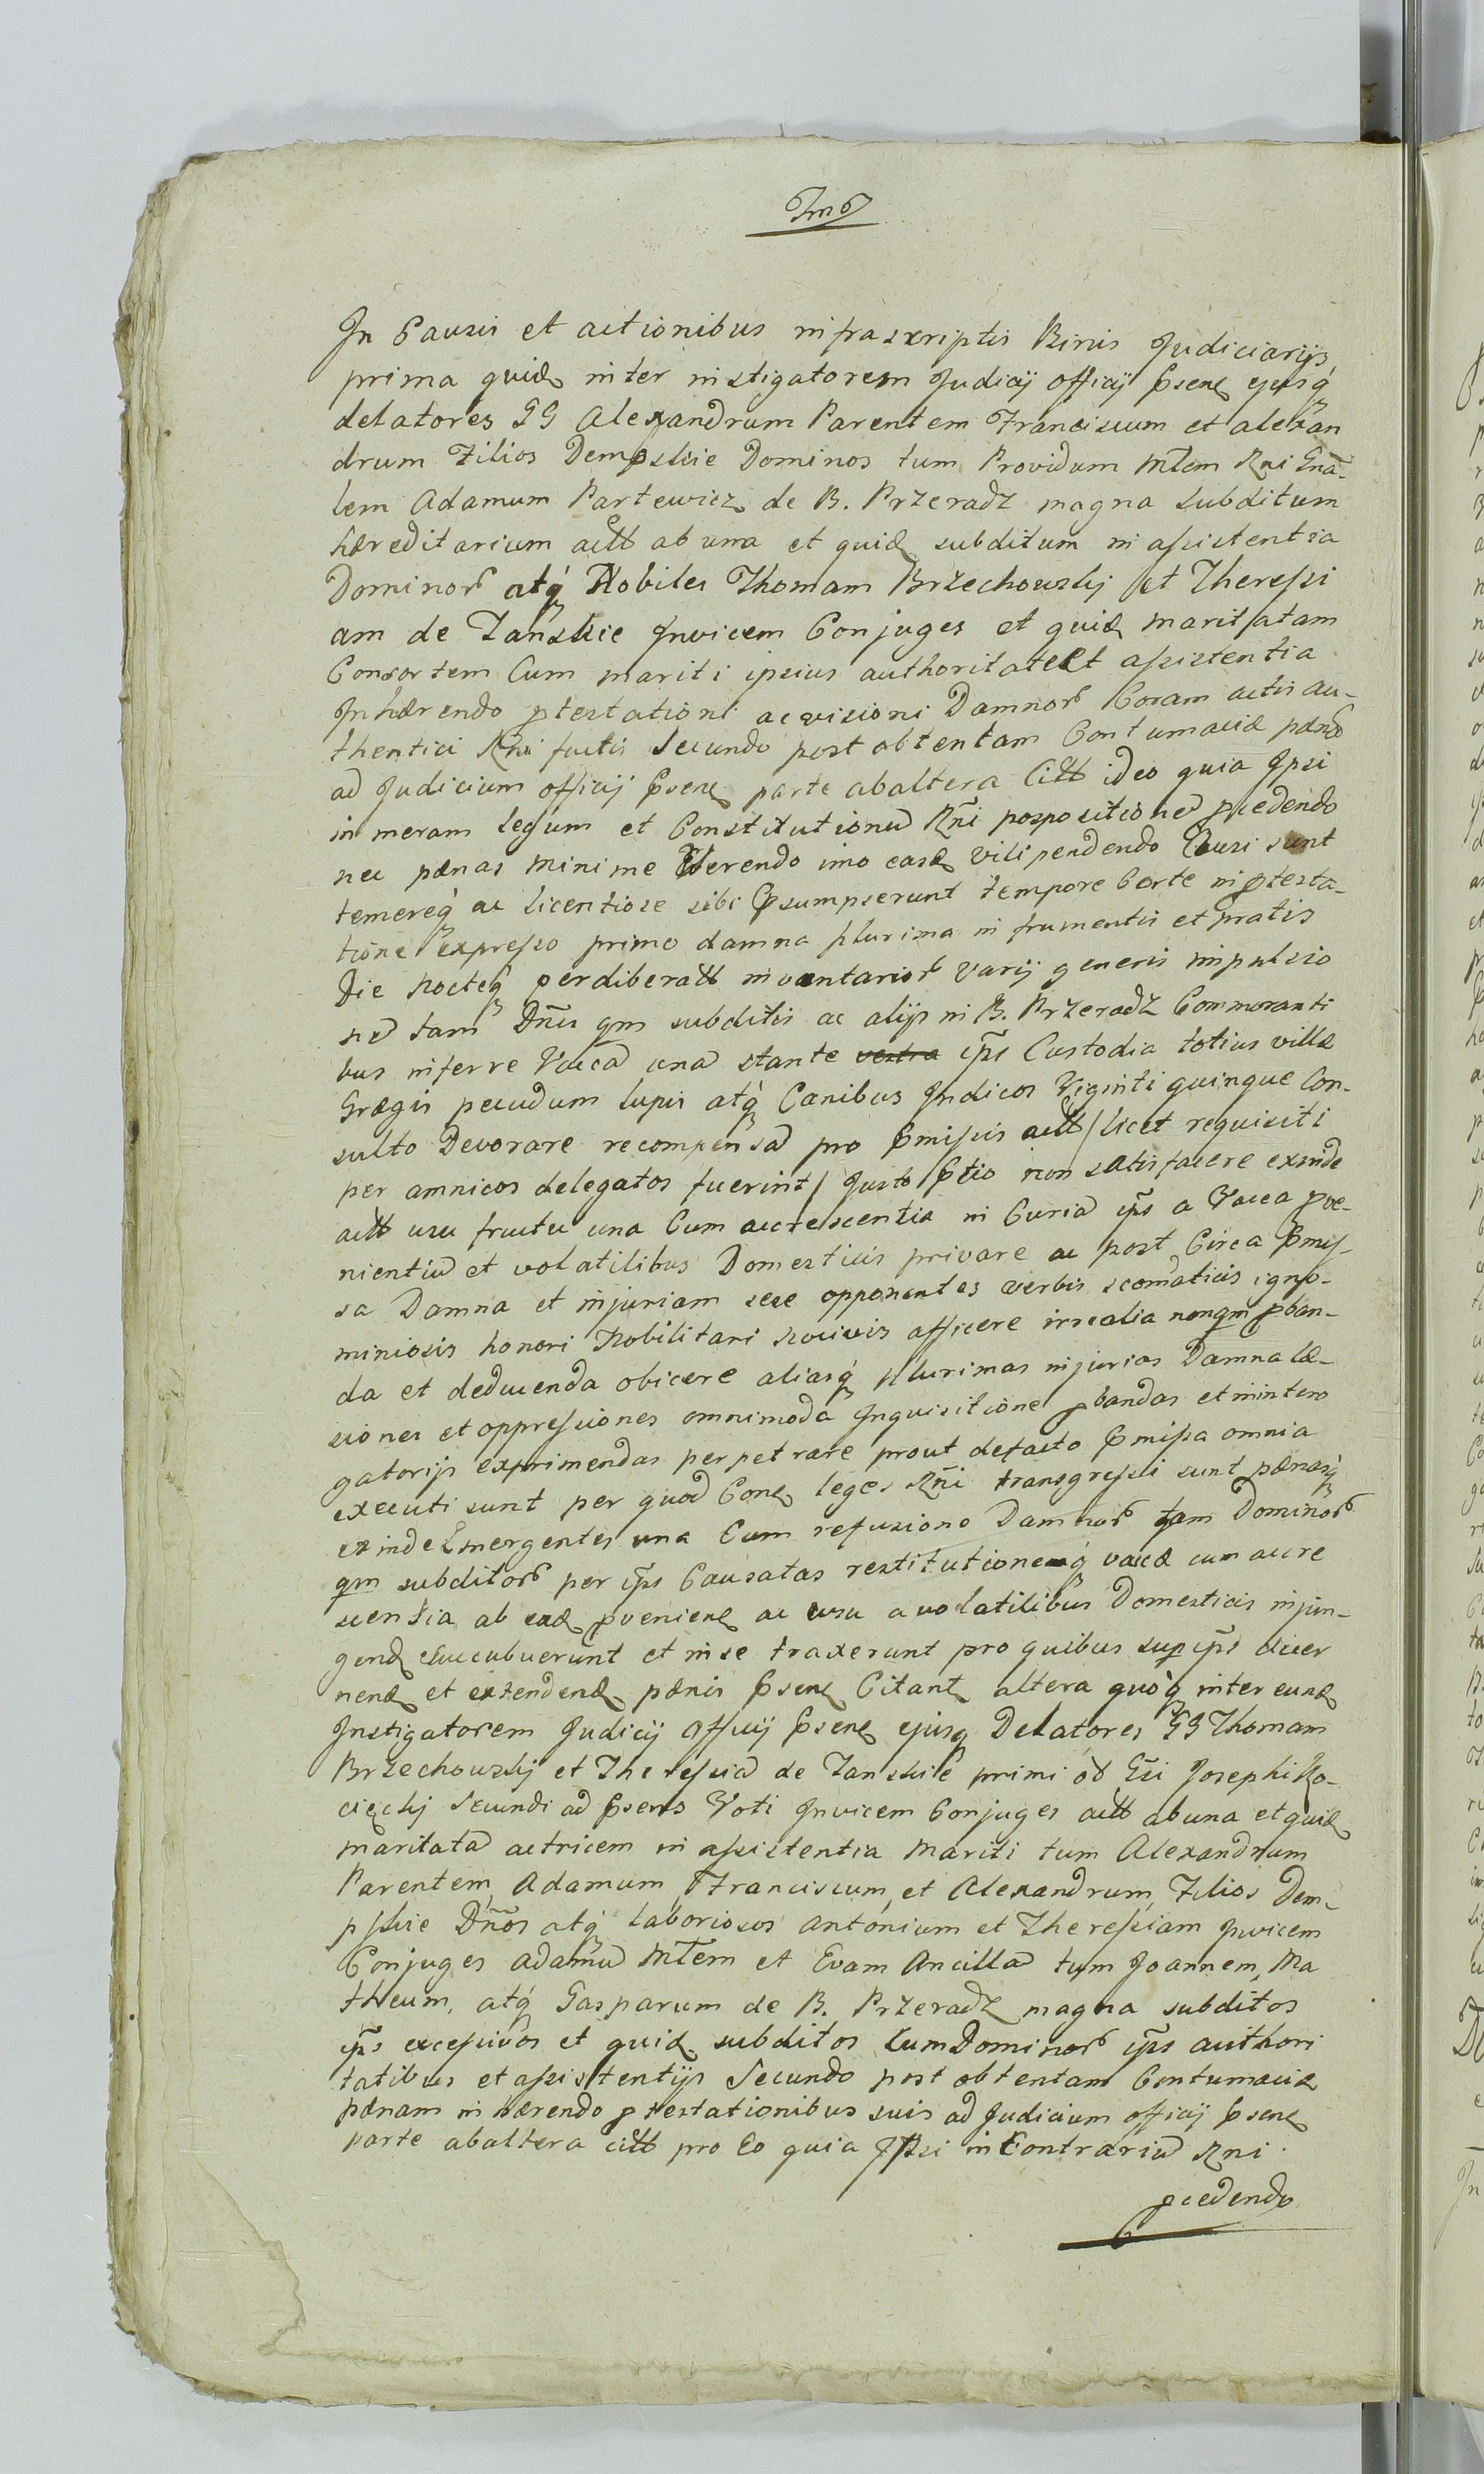 In Causis et actionibus infrascriptis Binis Judiciarijs,
prima quidē inter instigatorem Judicij Officij pńsenē ejusq́
delatores GG Alexandrum Parentem Franciscum et alexan
drum Filios Dempskie Dominos tum Providum mltem Rni Gnā-
lem Adamum Partewicz de B. Przeradz magna subditum
hæreditarium actt ab una et quid subditum in assistentia
Dominorꝰ atq́ Nobiles Thomam Brzechowskj et Theressi
am de Tanskie Invicem Conjuges et quid maritatam
Consortem Cum mariti ipsius authoritate Et assistentia
Inhærendo ptestationi ac visioni Damnorꝰ Coram actis au-
thentici Rni factis Secundo post obtentam Contumaciæ pænā
ad Judicium officij psenē parte abaltera Citt ideo quia Ipsi
in meram legum et Constitutionū Rñi pospositionē pcedendo
nec pænas minime Verendo imo easd vilipendendo Ausi sunt
temereq́ ac licentiose sibi psumpserunt tempore Certe in ptesta-
tione expresso primo damna plurima in frumentis et pratis
Die Nocteq́ perdiberatt inventariorꝰ varij generis impulsio
nē tam Dñis qm subditis ac alijs in B. Przeradz Commoranti
bus inferre Vacā unā stante vestra ip̄s Custodia totius villæ
Grægis pecudum lupis atq́ Canibus Indicos Viginti quinque Con-
sulto Devorare recompensā pro pmissis actt / licet requisiti
per amnicos delegatos fuerint / Justo ptio non satisfacere exinde
actt usu fructu una Cum accrescentia in Curiā ip̄s a Vacca pve-
nientiū et volatilibus Domesticis privare ac post Circa pmis-
sa Damna et injuriam sese opponentes verbis scomaticis igno-
miniosis honori Nobilitari nocivis afficere irrealia nonqm pban-
da et deducenda obicere aliasq́ plurimas injurias Damna læ-
siones et oppressiones omnimodâ Inquisitione pbandas et in intero
gatorijs exprimendas perpetrare prout defacto pmissa omnia
executi sunt per quod Conē leges Rñi transgressi sunt pænasq́
exinde Emergentes una Cum refusione Damnorꝰ tam Dominorꝰ
qm subditorꝰ per ip̄s Causatas restitutioneq́ vaccæ cum accre
scentia ab eadē pvenienē ac usu a volatilibus Domesticis injun-
gend succubuerunt et in se traxerunt pro quibus sup ip̄s decer
nend et extendend pænis psenē Citant altera quoq́ inter eund
Instigatorem Judicij Officij psenē ejusq Delatores GG Thomam
Brzechowskj et Theressiā de Tanskie primi od Gñi Josephi Ko-
cięckj Secundi ad psens Voti Invicem Conjuges actt ab una et quid
maritatā actricem in assistentia Mariti tum Alexandrum
Parentem, Adamum, Franciscum, et Alexandrum, Filios Dem-
pskie Dños atq́ laboriosos Antonium et Theressiam Invicem
Conjuges Adamū Mltem et Evam Ancillā tum Joannem, Ma
theum, atq́ Gasparum de B. Przeradz magna subditos
ip̄s excessivos et quid subditos Cum Dominorꝰ ip̄s authori
tatibus et assistentijs Secundo post obtentam Contumaciæ
pænam in hærendo ptestationibus suis ad Judicium officij psenē
parte abaltera citt pro Eo quia Ipsi in Contrariū Rni
pcedendo